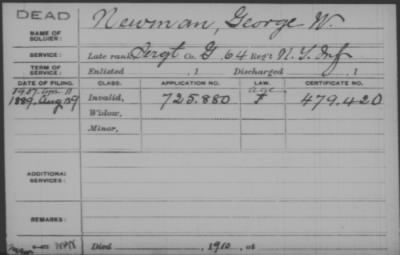 DEAD
NAME OF SOLDIER: Newman, George W.
SERVICE: Late rank, Co. G, 64 Reg't N.Y. Inf
TERM OF SERVICE: Enlisted , 1 Discharged , 1
DATE OF FILING. CLASS. APPLICATION NO. LAW. CERTIFICATE NO.
1907 Age
1889, Aug 29 Invalid, 725.880 F 479.420
Widow,
Minor,
ADDITIONAL SERVICES:
REMARKS:
Died , 191 , at